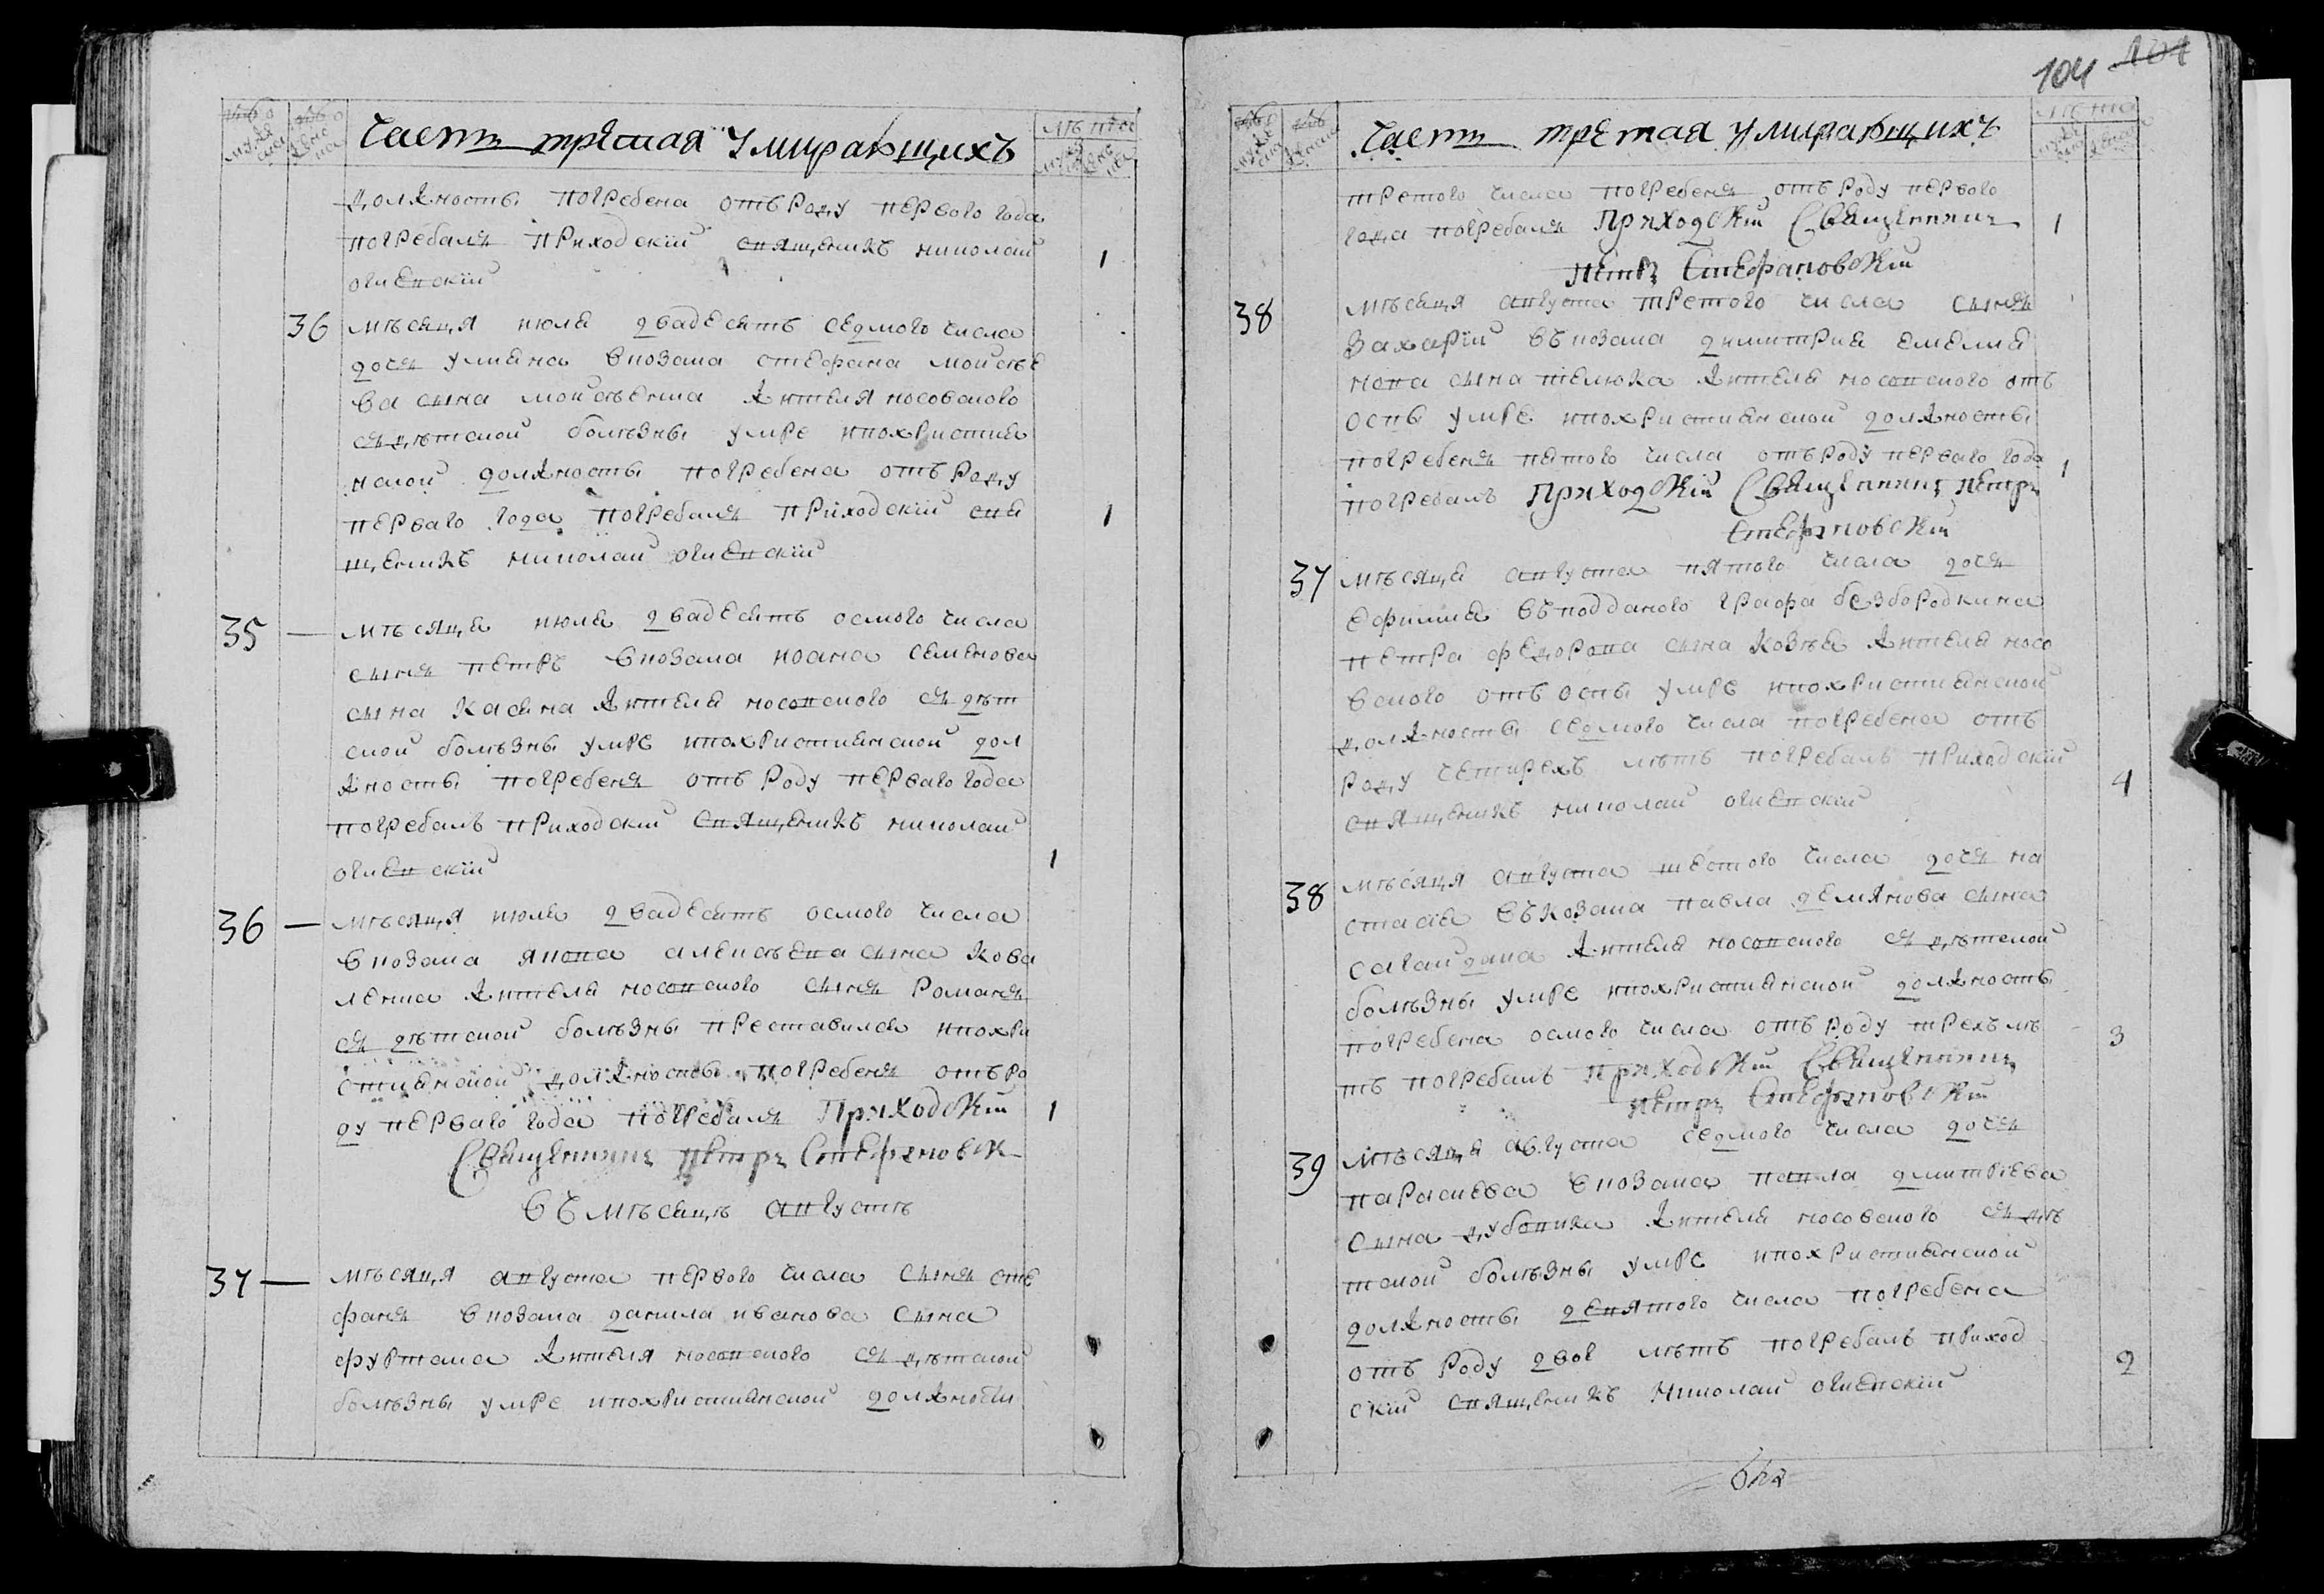 Часть третая умирающихъ
лѣта
должносты погребена отъ роду первого года
погребалъ приходскій священикъ николай 1
огиевскій
36 мѣсяця июля двадесять седмого числа
дочъ улияна
ва сына жителя носовского
съ дѣтской болѣзны умре ипохристия
нской должносты погребена отъ роду
перваго года погребалъ приходскій свя 1
щеникъ николай огиевскій
35 — мѣсяця июля двадесять осмого числа
сынъ петръ в козака иоана семенова
сына касяна жителя носовского съ дѣт
ской болѣзны умре ипохристиянской дол
жносты погребенъ отъ роду перваго года
погребалъ приходскій священикъ николай
огиевскій 1
36 — мѣсяця июля двадесять осмого числа
в козака якова алексѣева сына кова
ленка жителя носовского сынъ романъ
съ дѣтской болѣзны преставился ипохри
стиянской должносты погребенъ отъ ро
ду перваго года погребалъ Приходскій 1
Священникъ петръ Стефановск
въ мѣсяцѣ августѣ
37 — мѣсяця августа первого числа сынъ сте
фанъ в козака данила иванова сына
фуртака жителя носовского съ дѣтской
болѣзны умре ипохристиянской должности
104 101
Часть третая умирающихъ
лѣта
третого числа погребенъ отъ роду первого
года погребалъ Приходскій Священникъ 1
петръ Стефановскій
38 мѣсяця августа третого числа сынъ
захарій въ козака димитрия емелия
нова сына жителя носовского отъ
оспы умре ипохристиянской должносты
погребенъ пятого числа отъ роду перваго года 1
погребалъ Приходскій Священникъ петръ
Стефановскій
37 мѣсяця августа пятого числа дочъ
ефимия въ подданого графа безбородкина
петра федорова сына козѣя жителя носо
вского отъ оспы умре ипохристиянской
должносты седмого числа погребена отъ
роду четирехъ лѣтъ погребалъ приходскій 4
священикъ николай огиевскій
38 мѣсяця августа шестого числа дочъ на
стасия въ козака павла демянова сына
сагайдака жителя носовского съ дѣтской
болѣзны умре ипохристиянской должносты
погребена осмого числа отъ роду трехъ лѣ 3
тъ погребалъ приходскій Священникъ
петръ Стефановскій
39 мѣсяця августа седмого числа дочъ
параскева в козака павла дмитріева
сына дубовика жителя носовского съ дѣ
тской болѣзны умре ипохристиянской
должносты девятого числа погребена
отъ роду двох лѣтъ погребалъ приход 2
скій священикъ Николай огиевскій